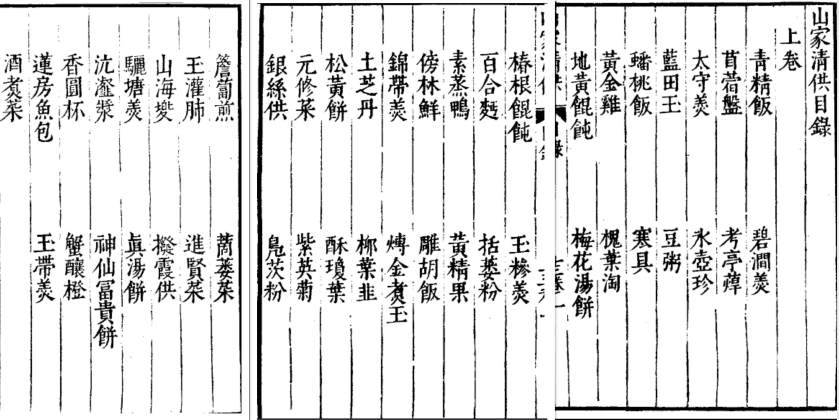 山家清供目錄
上卷
青精飯 碧澗羹
苜蓿盤 考亭蔊
太守羹 氷壺珍
藍田玉 豆粥
蟠桃飯 寒具
黃金雞 槐葉淘
地黃餛飩 梅花湯餅
椿根餛飩 玉糝羹
百合麪 括蔞粉
素蒸鴨 黃精果
傍林鮮 雕胡飯
錦帶羹 煿金煮玉
土芝丹 柳葉韭
松黃餅 酥瓊葉
元修菜 紫英菊
銀絲供 鳧茨粉
簷蔔煎 蒿蔞菜
玉灌肺 進賢菜
山海兠 撥霞供
驪塘羹 眞湯餅
沆瀣漿 神仙富貴餅
香圓杯 蟹釀橙
蓮房魚包 玉帶羹
酒煮菜